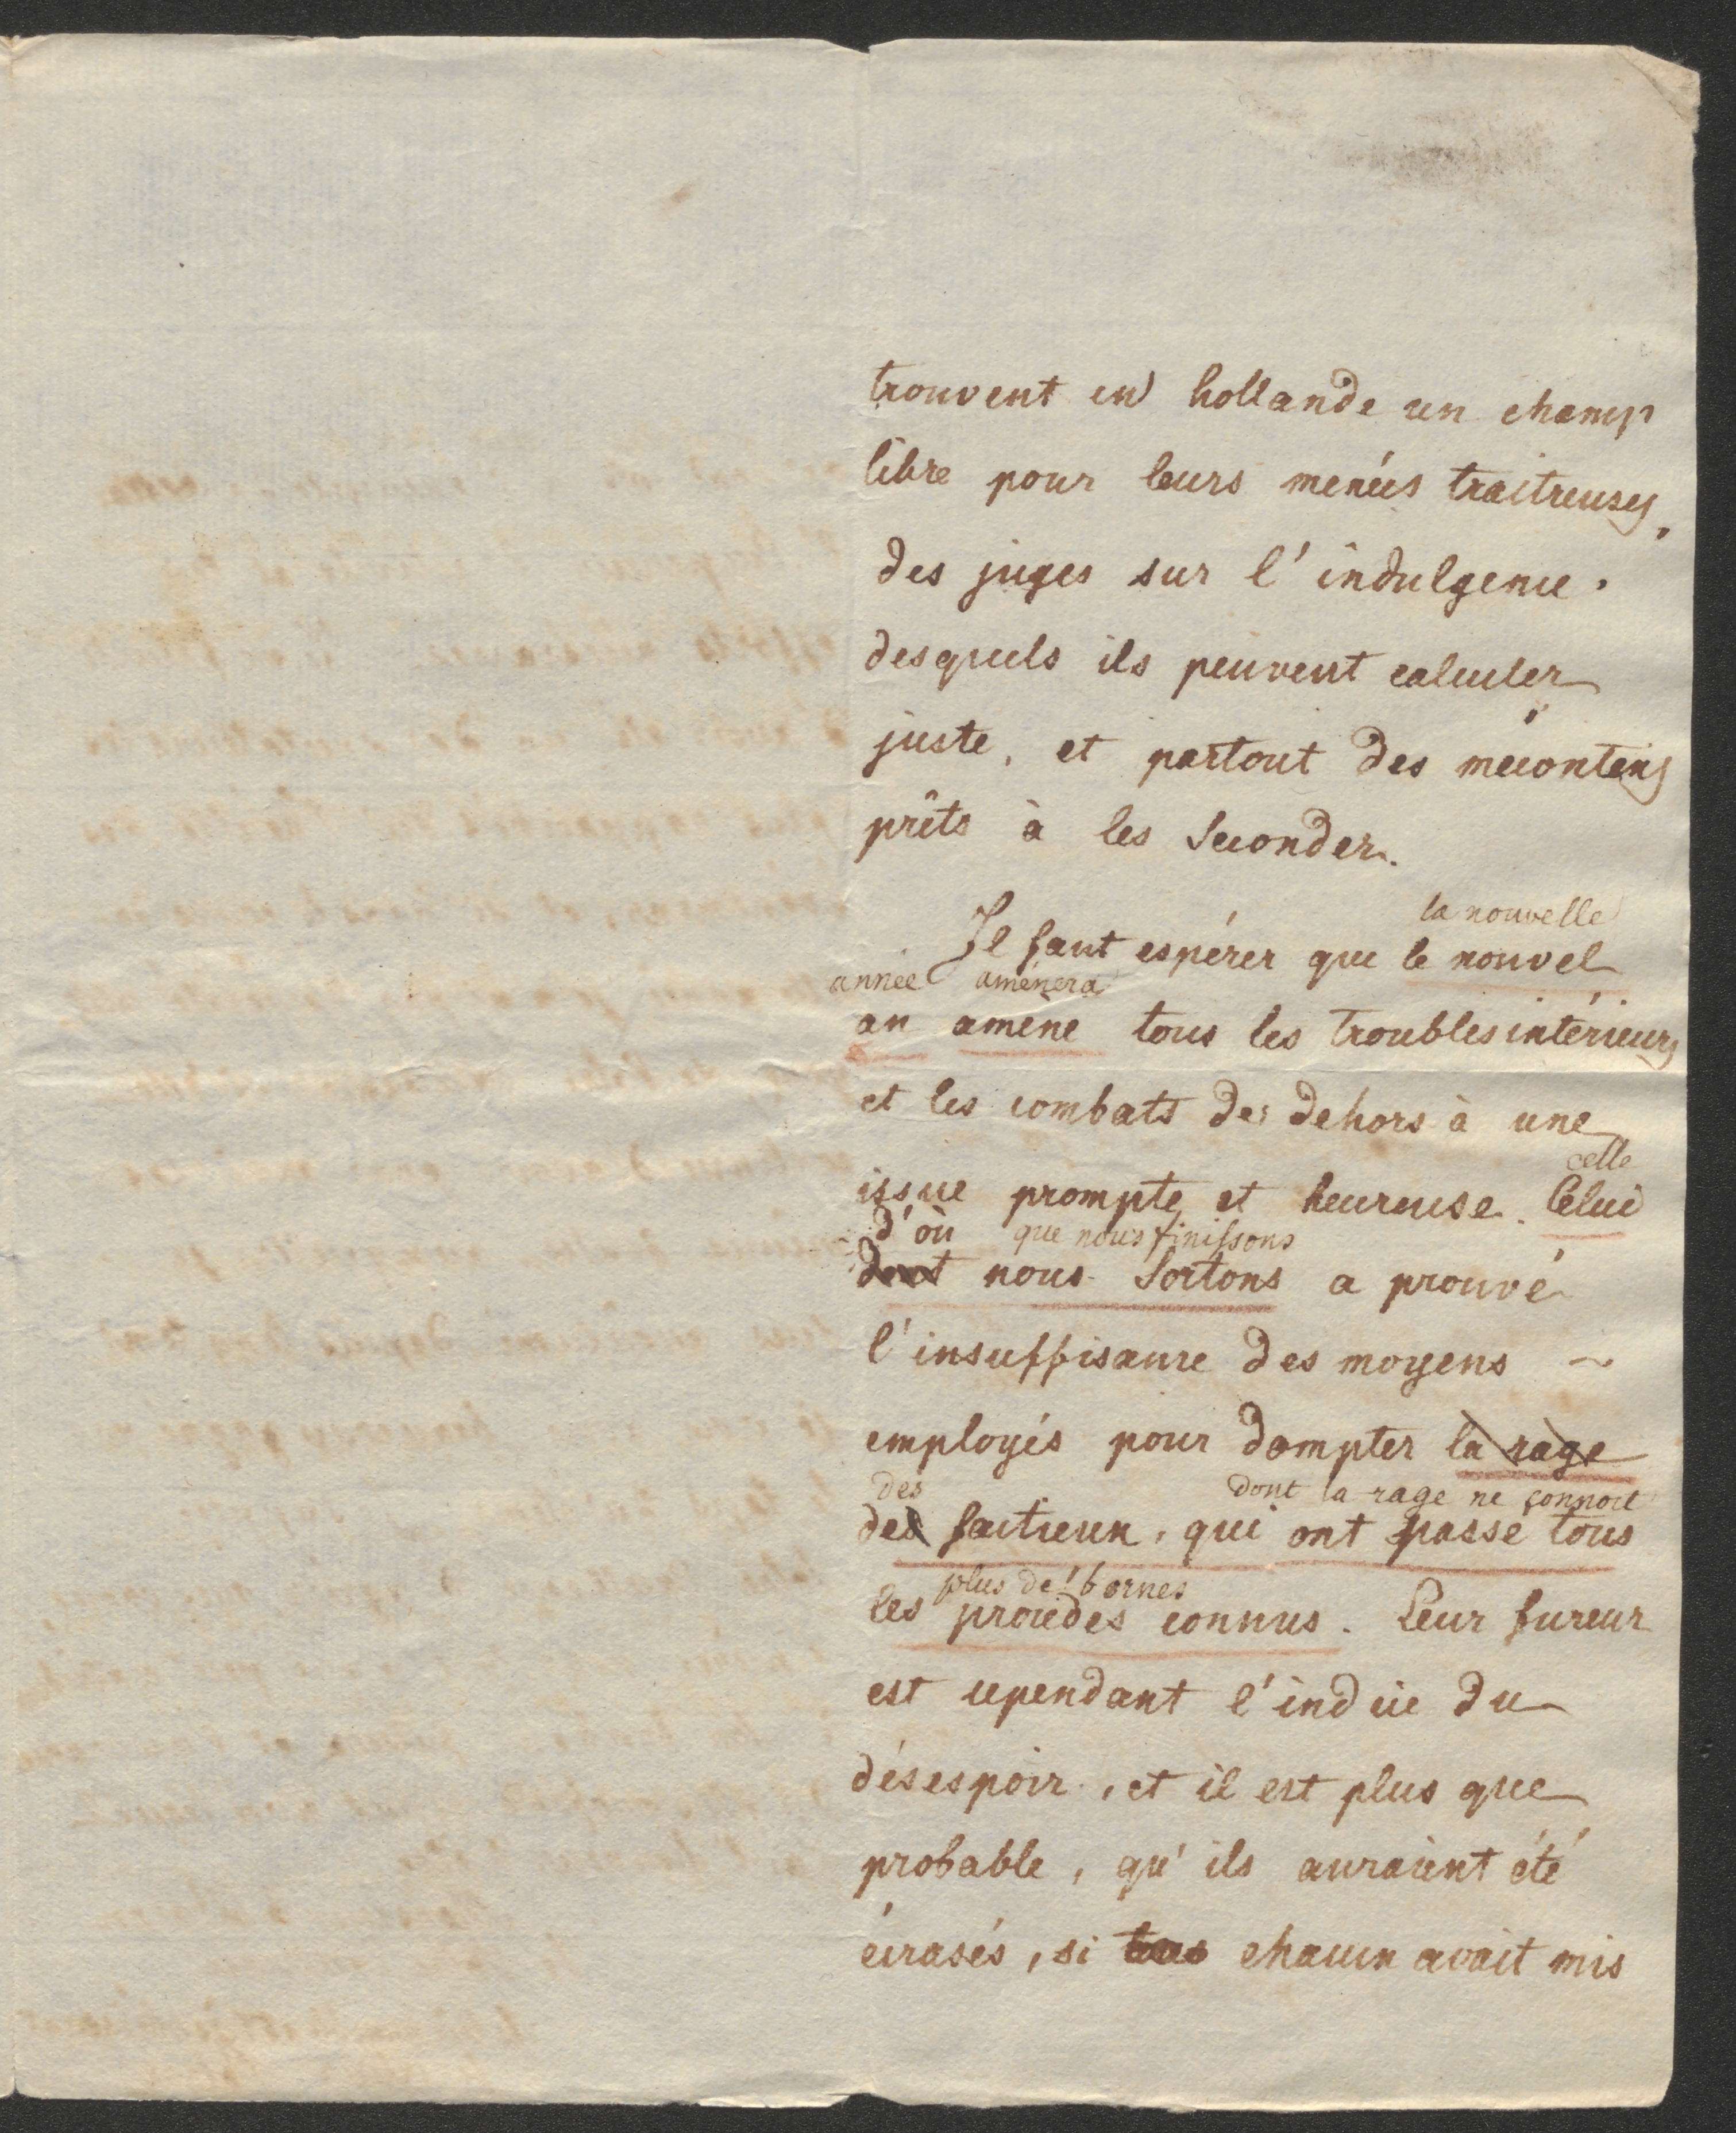 trouvent en hollande un champ
libre pour leurs menées traitreuses,
des juges sur l'indulgence.
desquels ils peuvent calculer
juste, et partout des mécontens
prêts à les seconder.
la nouvelle
Il faut espérer que le nouvel
année amènera
an amène tous les troubles intérieurs
et les combats de dehors à une
celle
issue prompte et heureuse. Celui
d'où que nous finissons
dont nous sortons a prouvé
l'insuffisance des moyens ~
employés pour dompter la rage
des dont la rage ne connoit
des factieux, qui ont passé tous
plus de bornes
les procedés connus. Leur fureur
est cependant l'indice du
désespoir, et il est plus que
probable, qu'ils auraient été
écrasés, si tous chacun avait mis